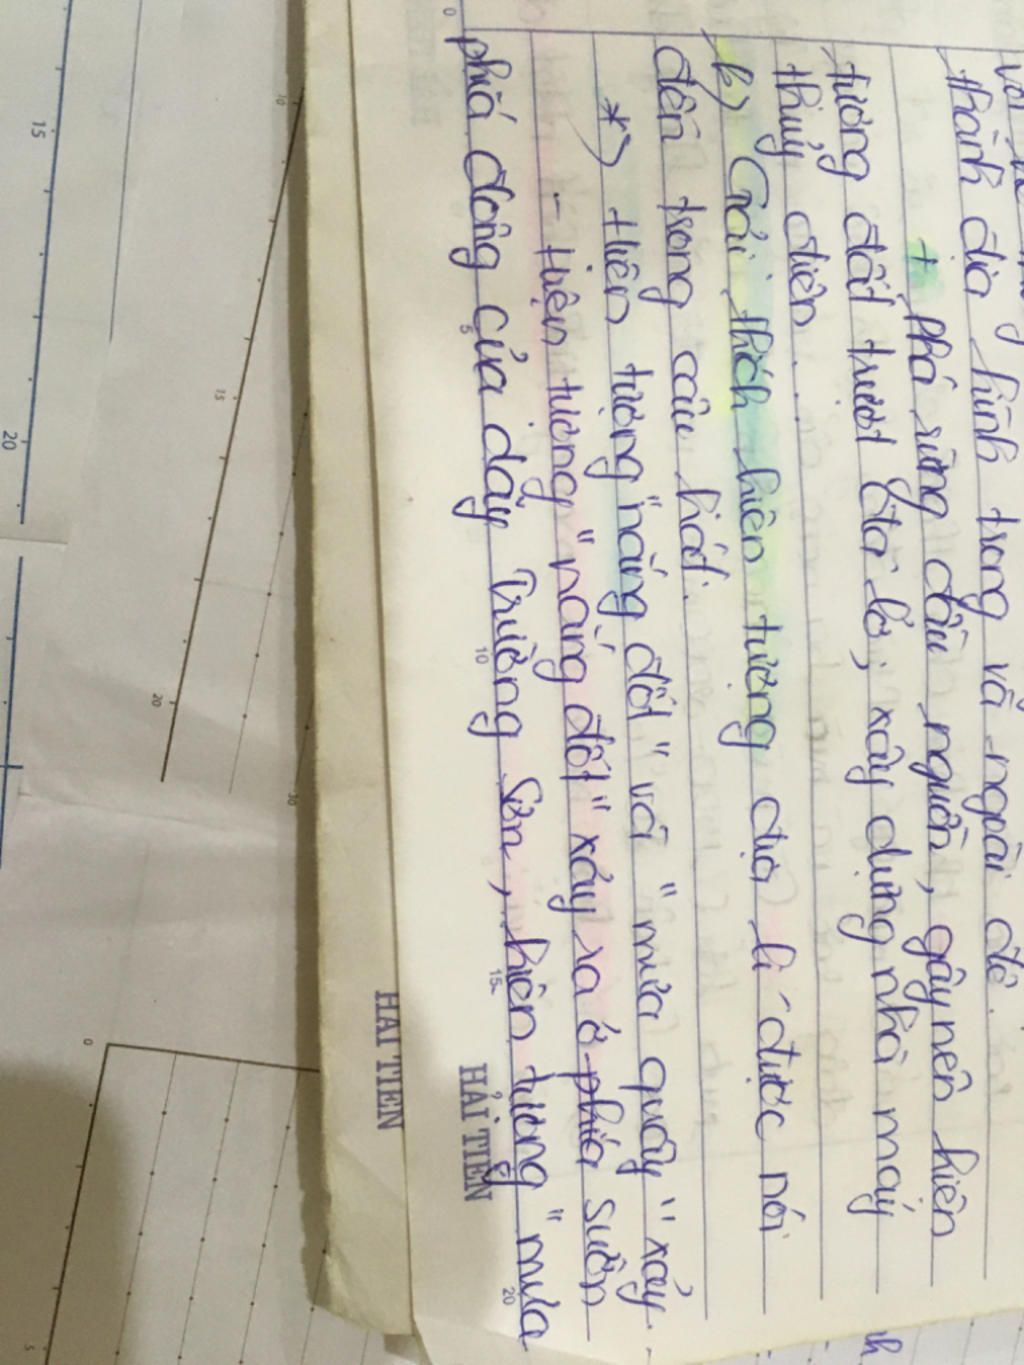 thành địa hình trong và ngoài đê.
+ Phá rừng đầu nguồn, gây nên hiện
tượng đất trượt đất lở, xây dựng nhà máy
thuỷ điện.
b) Giải thích hiện tượng địa lí được nói
đến trong câu hát.
*) Hiện tượng "nắng đốt" và "mưa quây" xảy
- Hiện tượng "nắng đốt" xảy ra ở phía sườn
phía đông của dãy Trường Sơn, hiện tượng "mưa
HẢI TIẾN
HAI TIEN
0
5
10
15
20
10
15
20
30
15
20
0
5